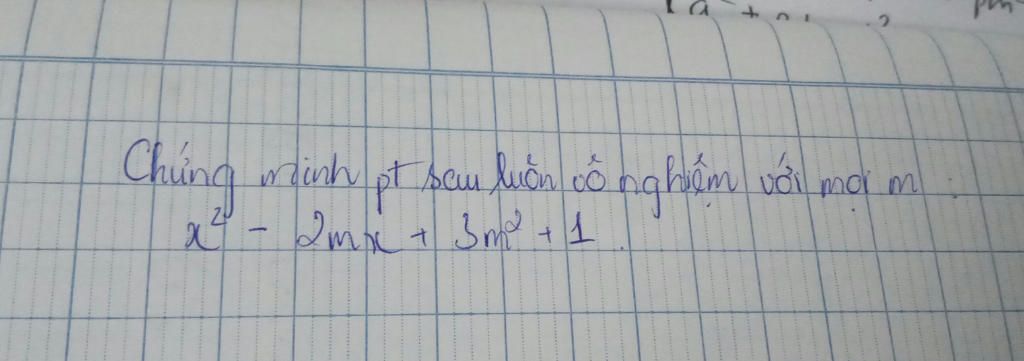 Chứng minh pt sau luôn vô nghiệm với mọi m :
x² - 2mx + 3m² + 1.